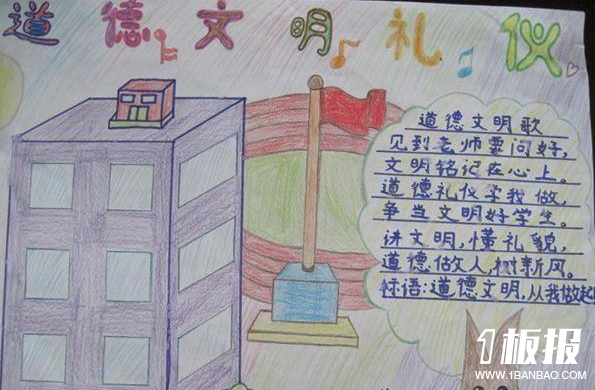 道德文明礼仪
道德文明歌
见到老师要问好，
文明铭记在心上。
道德礼仪学我做，
争当文明好学生。
讲文明，懂礼貌，
道德做人，树新风。
标语：道德文明，从我做起
1板报
WWW.1BANBAO.COM